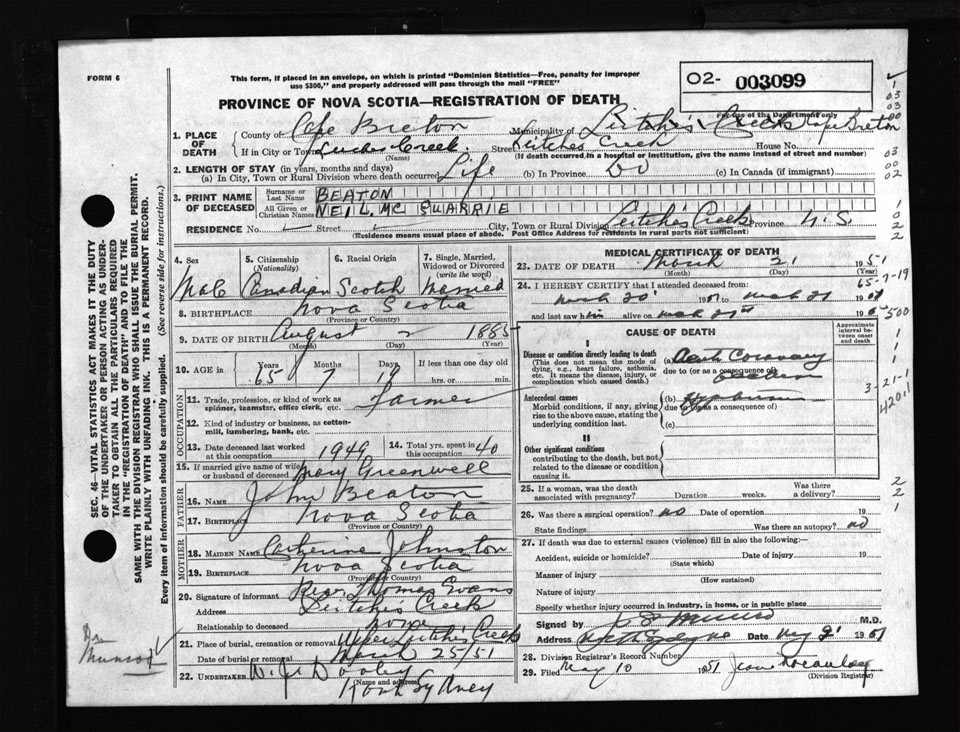 FORM 6
This form, if placed in an envelope, on which is printed "Dominion Statistics—Free, penalty for improper
use $300," and properly addressed will pass through the mail "FREE"
O2- 003099
For use of the Department only
PROVINCE OF NOVA SCOTIA—REGISTRATION OF DEATH
1. PLACE OF DEATH
County of Cape Breton Municipality of Leitches Creek Cape Breton
If in City or Town Creek Street Leitches Creek House No.
(Name) (If death occurred in a hospital or institution, give the name instead of street and number)
2. LENGTH OF STAY (in years, months and days)
(a) In City, Town or Rural Division where death occurred Life (b) In Province Do (c) In Canada (if immigrant)
3. PRINT NAME OF DECEASED
Surname or Last Name BEATON
All Given or Christian Names NEIL MC QUARRIE
RESIDENCE No. Street City, Town or Rural Division Leitches Creek Province N.S.
(Residence means usual place of abode. Post Office Address for residents in rural parts not sufficient)
4. Sex Male
5. Citizenship (Nationality) Canadian
6. Racial Origin Scotch
7. Single, Married, Widowed or Divorced (write the word) Married
8. BIRTHPLACE Nova Scotia
(Province or Country)
9. DATE OF BIRTH August 2 1885
(Month) (Day) (Year)
10. AGE Years 65 Months 7 Days If less than one day old hrs. or min.
OCCUPATION
11. Trade, profession, or kind of work as spinner, teamster, office clerk, etc. Farmer
12. Kind of industry or business, as cotton-mill, lumbering, bank, etc.
13. Date deceased last worked at this occupation 1949
14. Total yrs. spent in this occupation 40
15. If married give name of wife or husband of deceased Mary Greenwell
FATHER
16. Name John Beaton
17. Birthplace Nova Scotia
(Province or Country)
MOTHER
18. MAIDEN NAME Catherine Johnston
19. BIRTHPLACE Nova Scotia
(Province or Country)
20. Signature of informant Rev. Thomas Evans
Address Leitches Creek
Relationship to deceased none
21. Place of burial, cremation or removal Upper Leitches Creek
Date of burial or removal March 25/51
22. UNDERTAKER W. J. Dooley
(Name and address) North Sydney
MEDICAL CERTIFICATE OF DEATH
23. DATE OF DEATH March 21 1951
(Month) (Day) (Year)
65-7-19
24. I HEREBY CERTIFY that I attended deceased from:
March 20 1951 to March 21 19
and last saw him alive on March 21st 19
CAUSE OF DEATH
Approximate interval between onset and death
I
Disease or condition directly leading to death
(This does not mean the mode of dying, e.g., heart failure, asthenia, etc. It means the disease, injury, or complication which caused death.)
(a) Coronary
due to (or as a consequence of)
Antecedent causes
Morbid conditions, if any, giving rise to the above cause, stating the underlying condition last.
(b)
due to (or as a consequence of)
(c)
II
Other significant conditions
contributing to the death, but not related to the disease or condition causing it.
3-21-1
4201
25. If a woman, was the death associated with pregnancy? Duration weeks. Was there a delivery?
26. Was there a surgical operation? no Date of operation 19
State findings Was there an autopsy? no
27. If death was due to external causes (violence) fill in also the following:—
Accident, suicide or homicide? Date of injury 19
(State which)
Manner of injury
(How sustained)
Nature of injury
Specify whether injury occurred in industry, in home, or in public place
Signed by Munro M.D.
Address North Sydney Date 1951
28. Division Registrar's Record Number
29. Filed May 10 1951 Jean
(Division Registrar)
SEC. 46 - VITAL STATISTICS ACT MAKES IT THE DUTY
OF THE UNDERTAKER OR PERSON ACTING AS UNDER-
TAKER TO OBTAIN ALL THE PARTICULARS REQUIRED
IN THE "REGISTRATION OF DEATH" AND TO FILE THE
SAME WITH THE DIVISION REGISTRAR WHO SHALL ISSUE THE BURIAL PERMIT.
WRITE PLAINLY WITH UNFADING INK. THIS IS A PERMANENT RECORD.
Every item of information should be carefully supplied. (See reverse side for instructions.)
Dr.
Munro